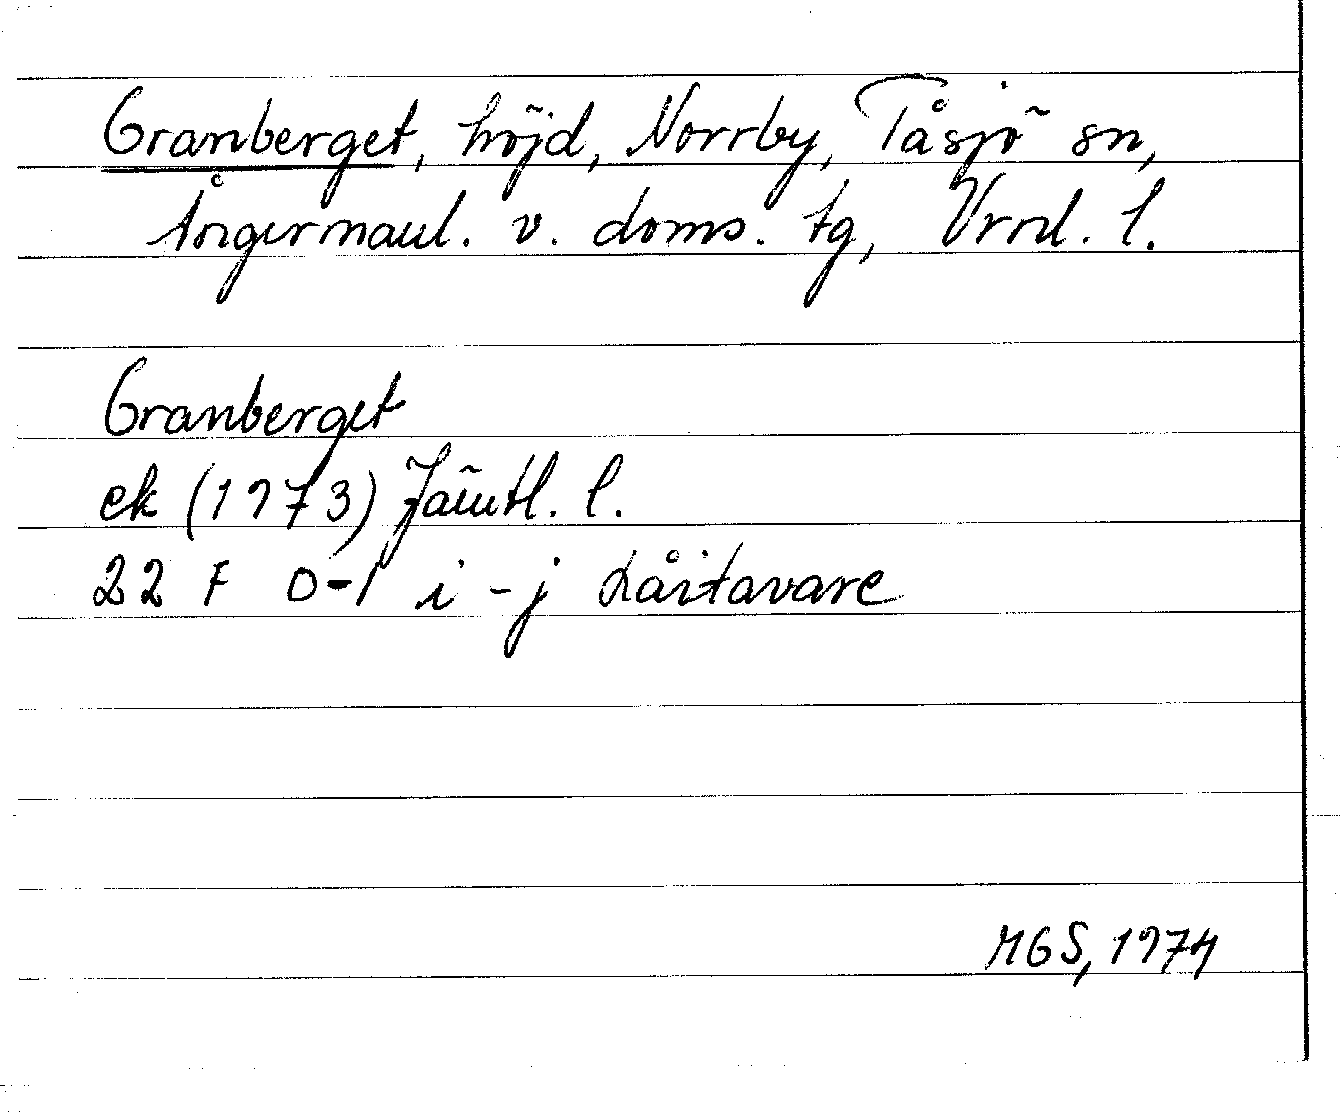 Granberget, höjd, Norrby, Tåsjö sn,
Ångermanl. v. doms. tg, Vrnl. l.
Granberget
ek (1973) Jämtl. l.
22 F 0-1 i - j Råitavare
MGS, 1974